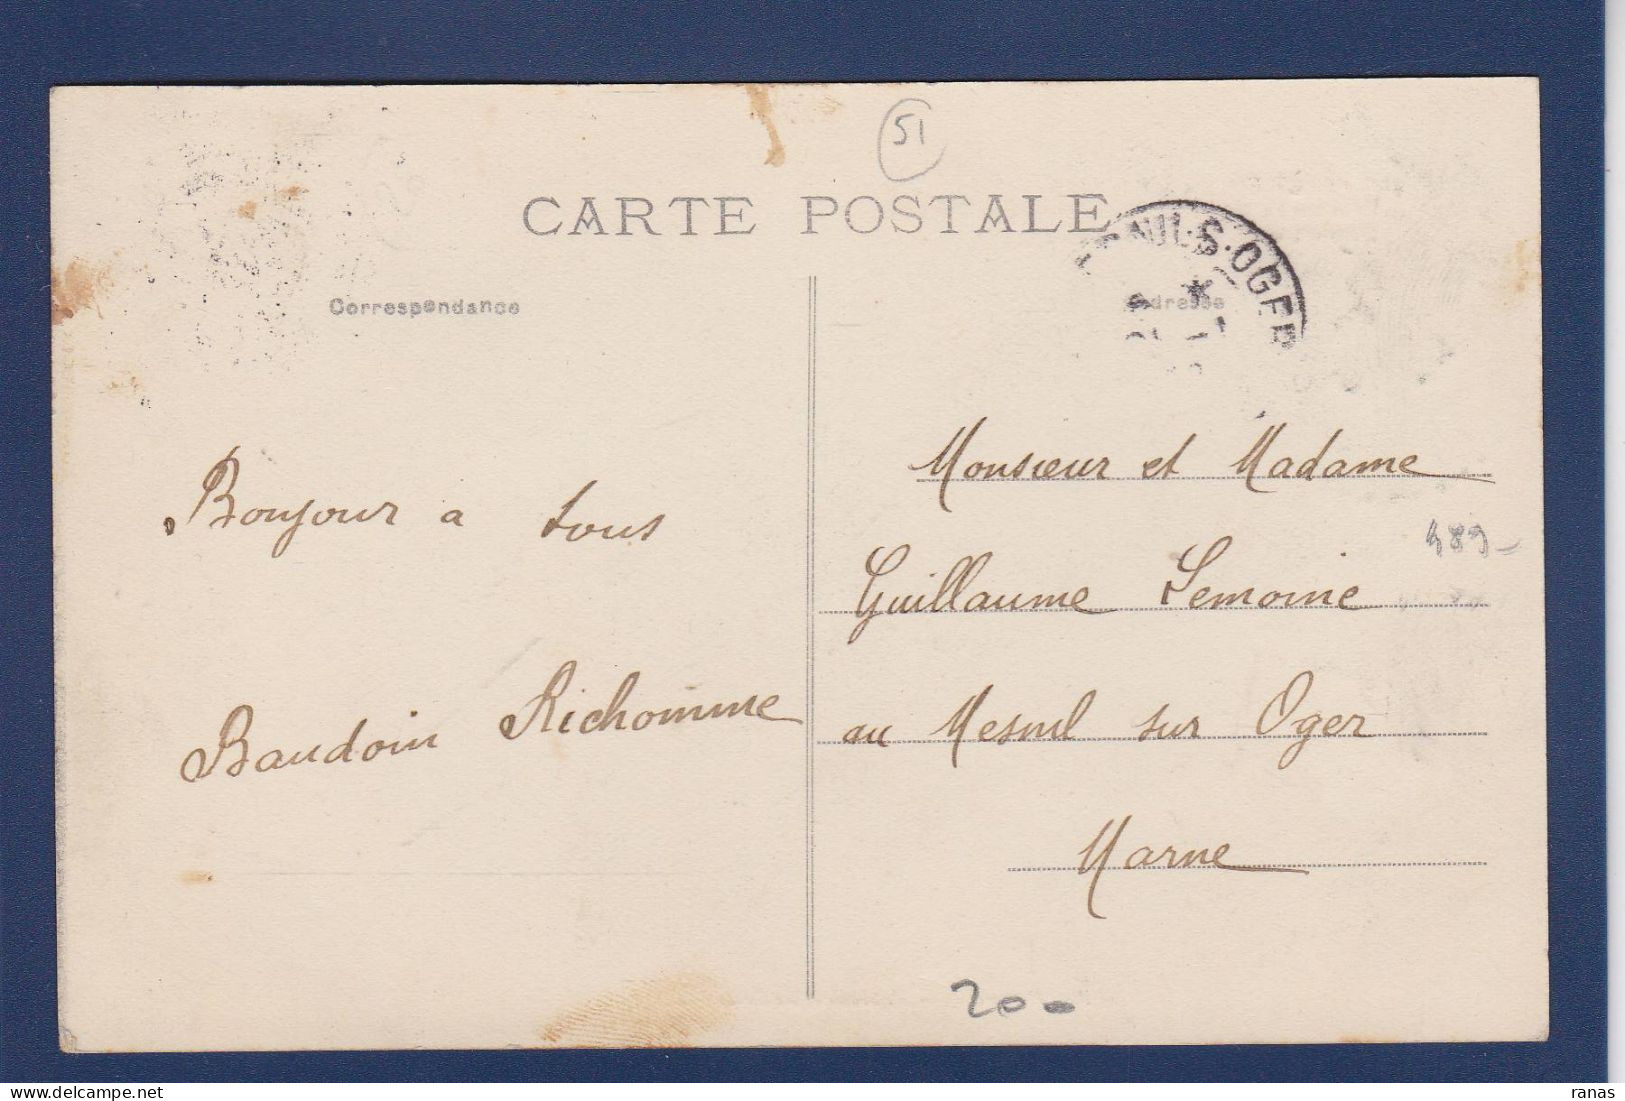 51
CARTE POSTALE
Correspondance
Adresse
NIL-S-OGER
Bonjour a tous
Baudoin Richomme
Monsieur et Madame
Guillaume Lemoine
au Mesnil sur Oger
Marne
489-
200
ranas